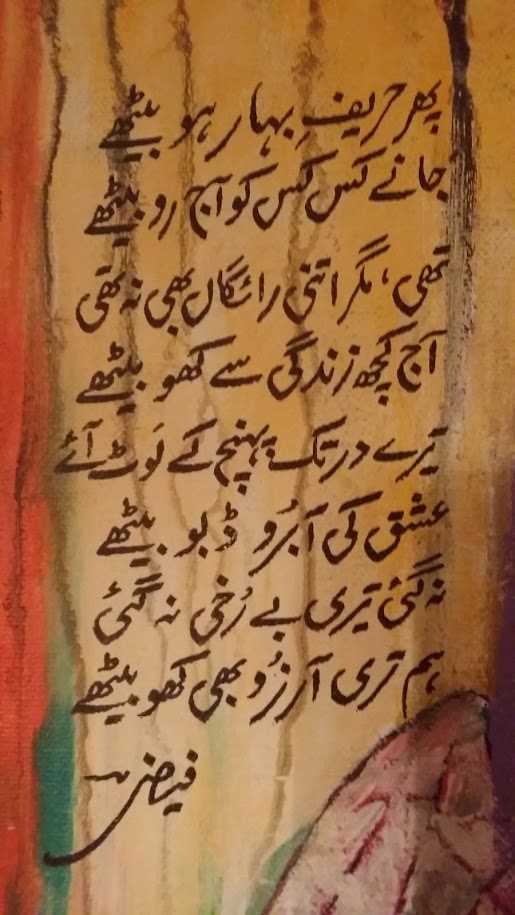 پھر حریفِ بہار ہو بیٹھے
جانے کس کس کو آج رو بیٹھے
تھی، مگر اتنی رائگاں بھی نہ تھی
آج کچھ زندگی سے کھو بیٹھے
تیرے در تک پہنچ کے لَوٹ آئے
عشق کی آبرُو ڈبو بیٹھے
نہ گئی تیری بے رُخی نہ گئی
ہم تری آرزُو بھی کھو بیٹھے
فیض